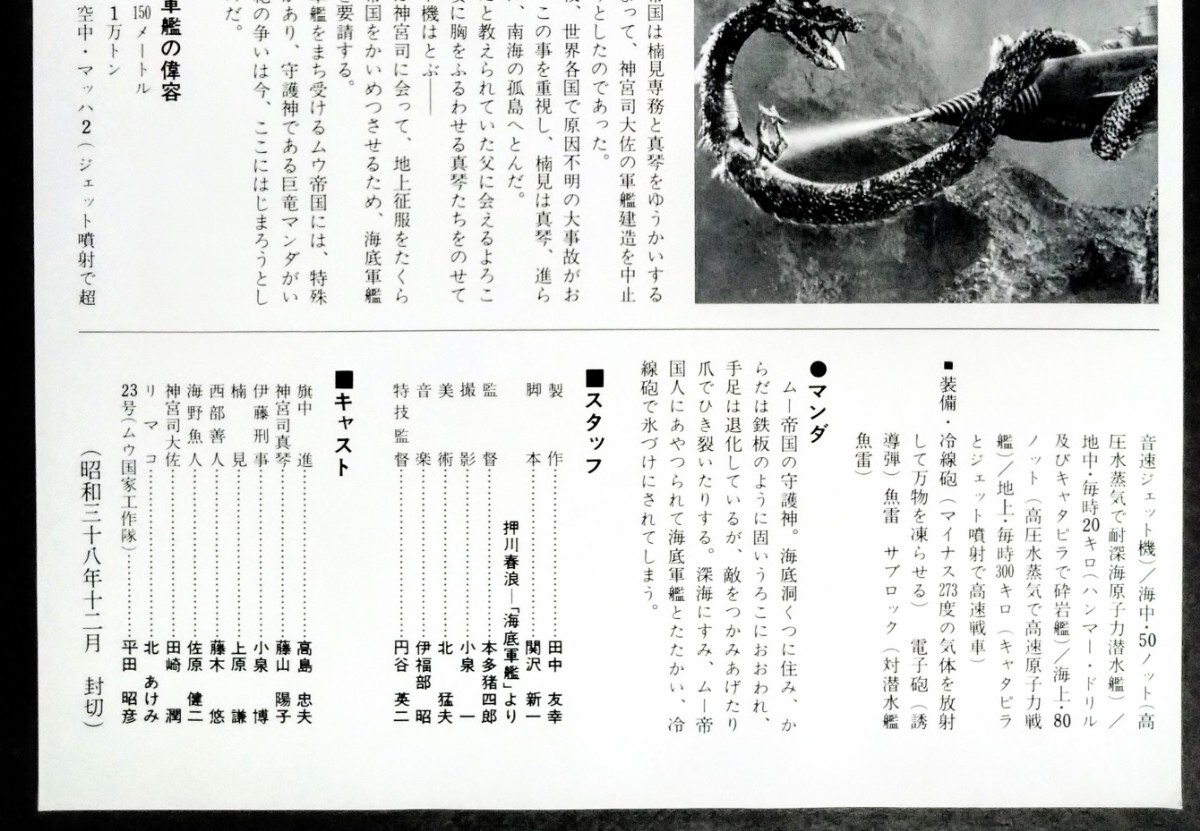 帝国は楠見専務と真琴をゆうかいする
って、神宮司大佐の軍艦建造を中止
としたのであった。
、世界各国で原因不明の大事故がお
この事を重視し、楠見は真琴、進ら
、南海の孤島へとんだ。
と教えられていた父に会えるよろこ
に胸をふるわせる真琴たちをのせて
機はとぶ――
は神宮司に会って、地上征服をたくら
帝国をかいめつさせるため、海底軍艦
を要請する。
軍艦をまち受けるムウ帝国には、特殊
があり、守護神である巨竜マンダがい
の争いは今、ここにはじまろうとし
だ。
軍艦の偉容
150メートル
1万トン
空中・マッハ2（ジェット噴射で超
音速ジェット機）／海中・50ノット（高
圧水蒸気で耐深海原子力潜水艦）／
地中・毎時20キロ（ハンマー・ドリル
及びキャタピラで砕岩艦）／海上・80
ノット（高圧水蒸気で高速原子力戦
艦）／地上・毎時300キロ（キャタピラ
とジェット噴射で高速戦車）
■装備・冷線砲（マイナス273度の気体を放射
して万物を凍らせる）　電子砲（誘
導弾）魚雷　サブロック（対潜水艦
魚雷）
●マンダ
ムー帝国の守護神。海底洞くつに住み、か
らだは鉄板のように固いうろこにおおわれ、
手足は退化しているが、敵をつかみあげたり
爪でひき裂いたりする。深海にすみ、ムー帝
国人にあやつられて海底軍艦とたたかい、冷
線砲で氷づけにされてしまう。
■スタッフ
製作……………………田中　友幸
脚本……………………関沢　新一
押川春浪―「海底軍艦」より
監督……………………本多猪四郎
撮影……………………小泉　一
美術……………………北　猛夫
音楽……………………伊福部　昭
特技監督……………………円谷　英二
■キャスト
旗中　進……………………高島　忠夫
神宮司真琴……………………藤山　陽子
伊藤刑事……………………小泉　博
楠見……………………上原　謙
西部善人……………………藤木　悠
海野魚人……………………佐原　健二
神宮司大佐……………………田崎　潤
リマコ……………………北　あけみ
23号（ムウ国家工作隊）……………平田　昭彦
（昭和三十八年十二月　封切）